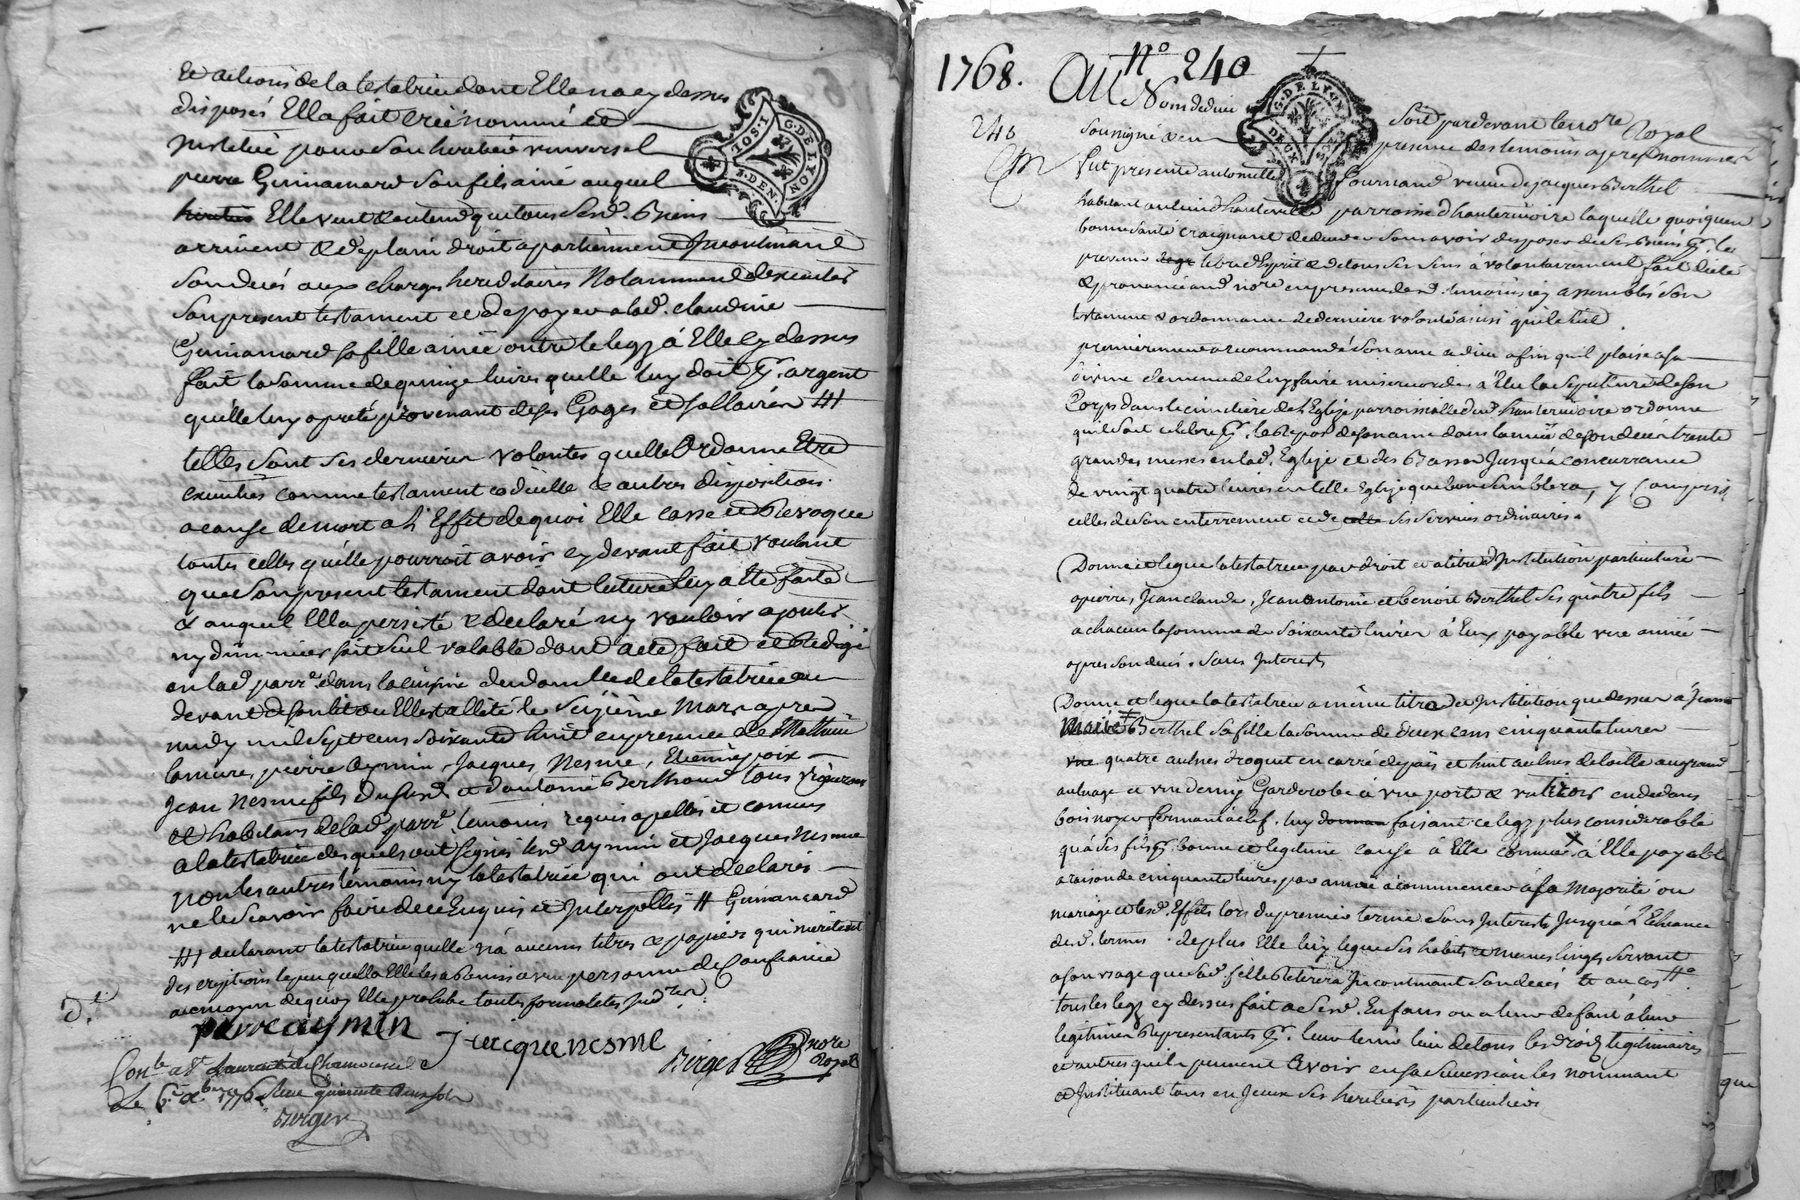 et actions de la testatrice dont Elle na cy dessus
disposés Ella fait créé nommé et
institué pour son heritier universel
pierre Guinamard son fils ainé auquel
Elle veut & entend que tous sesd. Biens
arrivent & de plain droit apartiennent Incontinant
son decés aux charges hereditaires Notamment dexecuter
son present testament et de payer a lad. claudine
Guinamard sa fille ainée outre le legz à Elle cy dessus
fait la somme de quinze livres quelle luy doit pr. argent
quelle luy a preté provenant de ses Gages et sallaires ///
telles sont ses dernieres volontés quelle Ordonne Etre
executées comme testament codicille & autres disposition
a cause de mort a l'Effet de quoi Elle casse et Revoque
toutes celles quelle pourroit avoir cy devant fait voulant
que son present testament dont lecture luy a été faite
& auquel Ella persisté & declaré ny vouloir ajouter
ny diminuer soit seul valable dont acte fait et Redigé
en lad. parr. dans la cuisine du domicile de la testatrice au
devant de son lit ou Elle est allitée le seizième Mars apres
midy mil sept cens soixante huit en presence de Mathieu
lamure, pierre aymin, Jacques Nesme, Etienne poix
Jean Nesme fils dufard et d'antoine Berthoud tous vignerons
et habitans de lad. parr. temoins requis apellés et connus
a la testatrice desquels ont signés lesd. aymin et Jacques Nesme
non les autres temoins ny la testatrice qui ont declarés
ne le scavoir faire de ce Enquis et Interpellés // Guinamard
/// declarant la testatrice quelle n'a aucuns titres & papiers qui meritent
description le peu quella Elle les a remis a une personne de Confiance
au moyen de quoy Elle prohibe toutes formalités Judres
D.t
pierre aymin
jacque nesme
Berger nore Royal
Conle a St Laurent de Chamousset
Le
Berger
TOS.I
G.DE LYON
2.DEN.
1768.
No 240
240
G.DE LYON
DEUX
Au Nom de dieu soit pardevant le nore Royal
sousigné & en presence des temoins apres nommés
fut presente antoinette fournand veuve de jacques Berthet
habitant au lieu d'hauteville parroisse d'hauterivoire laquelle quoiquen
bonne santé craignant de deceder sans avoir disposer de ses Biens pr. le
prevenir libre d'Esprit & de tous ses sens à volontairement fait dicté
& prononcé aud. nore en presence desd. temoins icy assemblés son
testament & ordonnance de derniere volonté ainsi quil suit
premierement a recommandé son ame a dieu afin qu'il plaise a sa
divine clemence de luy faire misericorde, à Elu la sepulture de son
Corps dans le cimetière de l'Eglise parroissialle dud. hauterivoire ordonne
quil soit celebré pr. le Repos de son ame dans l'année de son decés trente
grandes messes en lad. Eglise et des Basses Jusqu'a concurrance
de vingt quatre livres en telle Eglise que bon semblera, y Compris
celles de son enterrement et de ses services ordinaires.
Donne et legue la testatrice par droit et a titre d'Institution particulière
a pierre, Jean claude, Jean antoine et benoit Berthet ses quatre fils
a chacun la somme de soixante livres à Eux payable une année
apres son decés. sans Interets
Donne et legue la testatrice a même titre d'Institution que dessus à Jeanne
Marie Berthet sa fille la somme de deux cens cinquante livres
quatre aulnes droguet en carré de païs et huit aulnes de toille au grand
aulnage et une demy Garderobe à une porte & un tiroir en dedans
bois noyer fermant à clef. luy faisant ce legz plus considerable
qu'a ses fils pr. bonne et legitime cause à Elle connue a Elle payable
a raison de cinquante livres par année à commencer à sa Majorité ou
mariage et lesd. Effets lors du premier terme sans Interets Jusqu'a l'Echeance
desd. termes. de plus Elle luy legue ses habits & menus linges servant
a son usage que sad. fille Retirera Incontinant son decés
tous les legz cy dessus fait a sesd. Enfans ou a leur defaut à leur
legitimes Representants pr. leur tenir lieu de tous les droits legitimaires
et autres quils peuvent Avoir en sa succession les nommant
et Instituant tous en Jceux ses heritiers particuliers